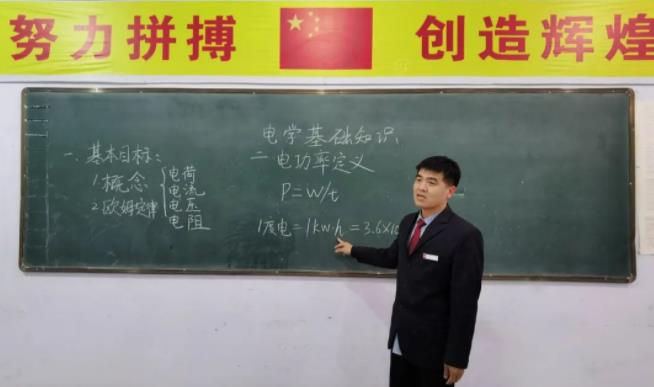 努力拼搏 创造辉煌
电学基础知识
一、基本目标：
1 概念
2 欧姆定律
电荷
电流
电压
电阻
二 电功率定义
P=W/t
1度电=1kw·h=3.6×10